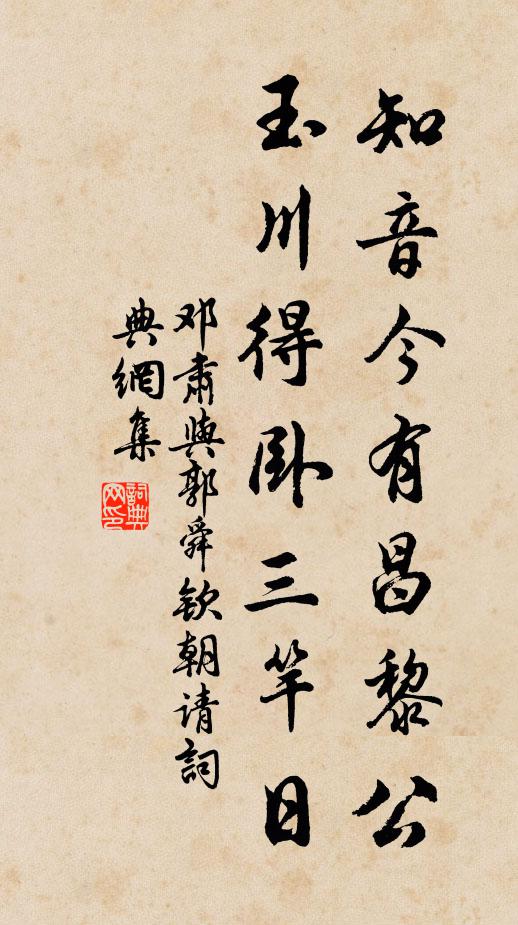 知音今有昌黎公
玉川得卧三竿日
邓肃與郭舜钦朝请詞
典網集
詞典网印